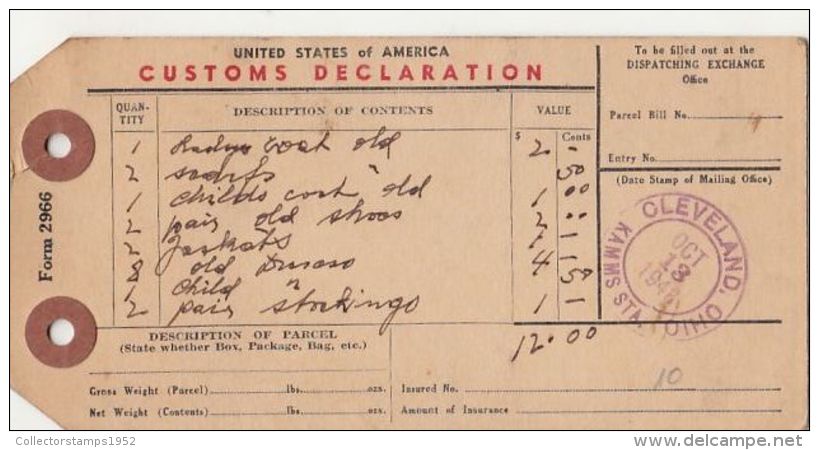 UNITED STATES of AMERICA
CUSTOMS DECLARATION
To be filled out at the
DISPATCHING EXCHANGE
Office
Parcel Bill No.
Entry No.
(Date Stamp of Mailing Office)
QUAN-
TITY
DESCRIPTION OF CONTENTS
VALUE
$ Cents
1 coat old 2 -
2 scarfs 50
1 childs coat old 1 00
2 pair old shoes 2 00
2 Jackets 1 -
8 old 4 -
1 child " 50
2 pair stockings 1 -
12.00
Form 2966
CLEVELAND, OHIO
KAMMS STA.
OCT
13
DESCRIPTION OF PARCEL
(State whether Box, Package, Bag, etc.)
Gross Weight (Parcel) lbs. ozs.
Net Weight (Contents) lbs. ozs.
Insured No.
10
Amount of Insurance
Collectorstamps1952
delcampe.net